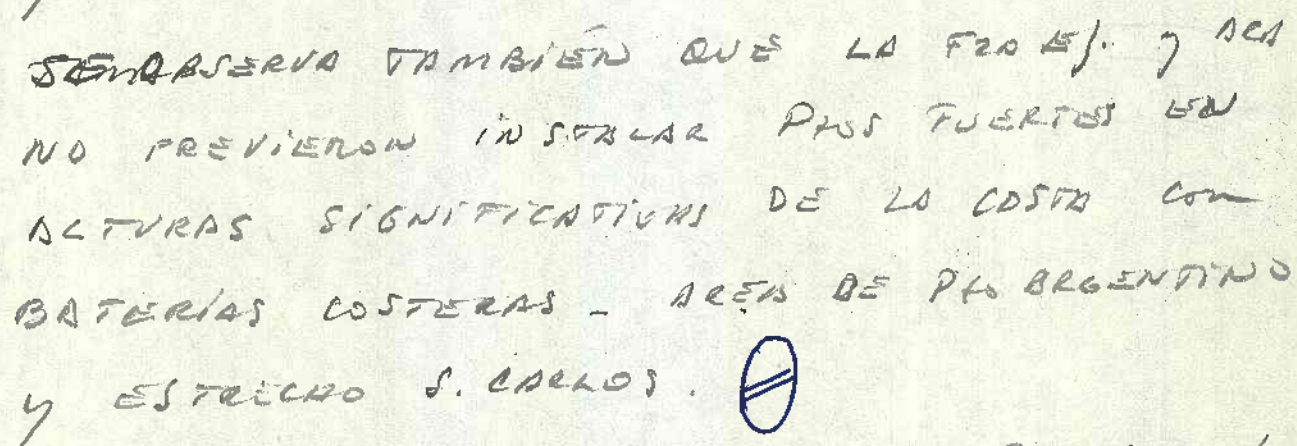 SE OBSERVA TAMBIÉN QUE LA FZA EJ. y ACA
NO PREVIERON INSTALAR PTOS FUERTES EN
ALTURAS SIGNIFICATIVAS DE LA COSTA CON
BATERÍAS COSTERAS - AREA DE PTO ARGENTINO
y ESTRECHO S. CARLOS.